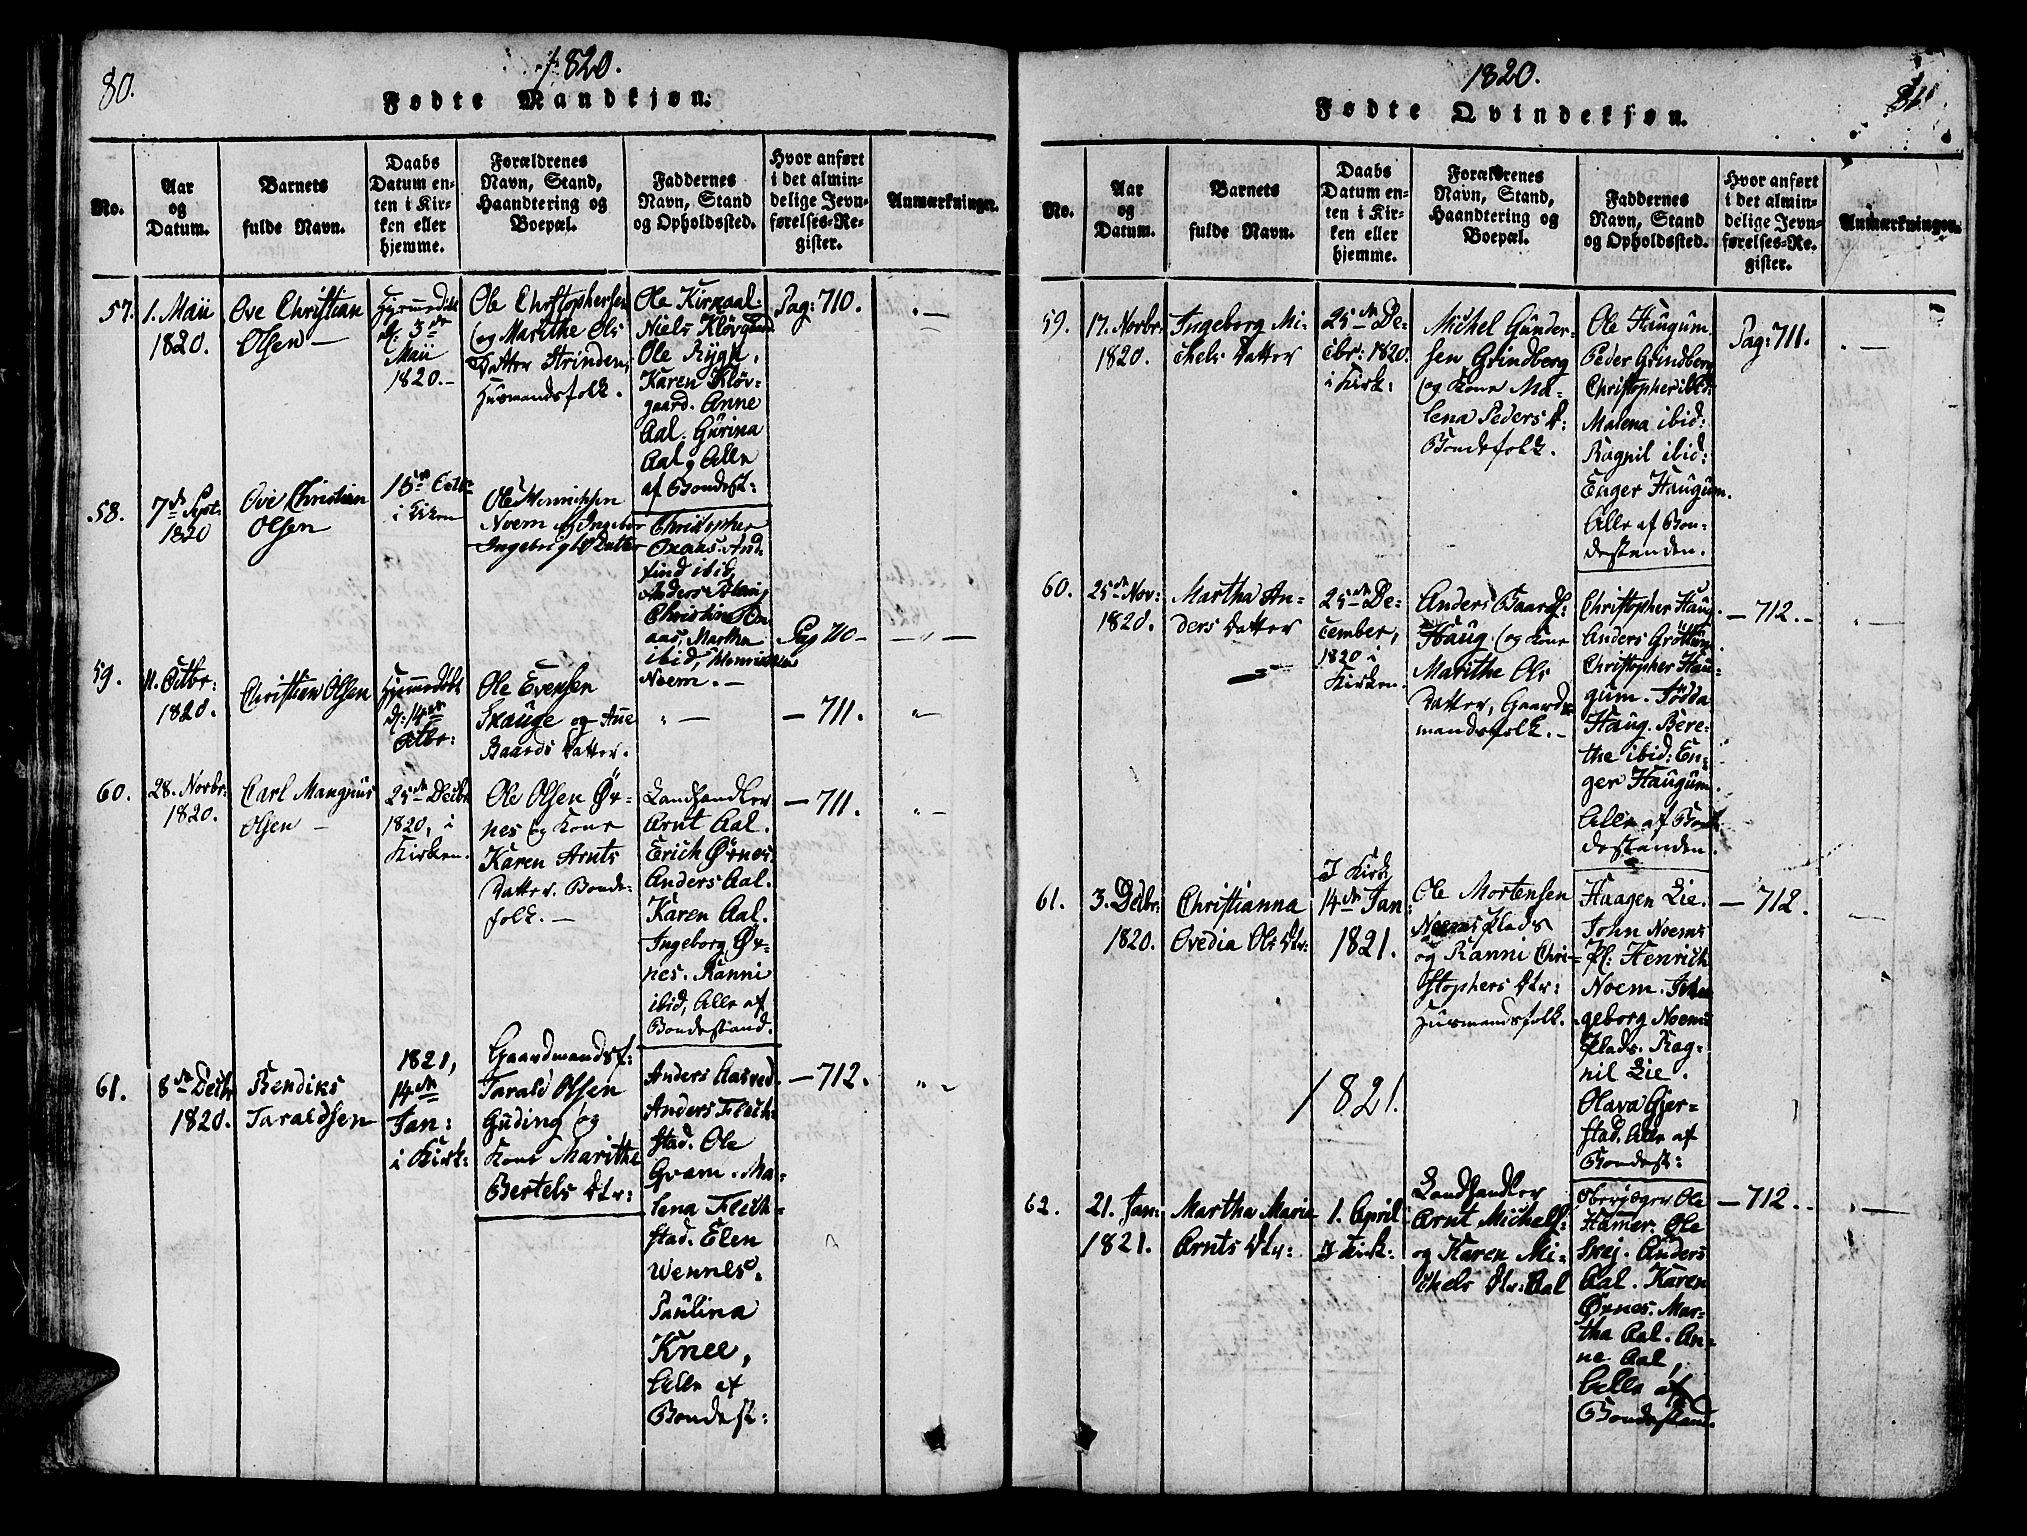 80.
1820.
Fødte Mandkjøn.
No.
Aar
og
Datum.
Barnets
fulde Navn.
Daabs
Datum en-
ten i Kir-
ken eller
hjemme.
Forældrenes
Navn, Stand,
Haandtering og
Boepæl.
Faddernes
Navn, Stand
og Opholdssted.
Hvor anført
i det almin-
delige Jevn-
førelses-Re-
gister.
Anmærkninger.
57.
1. Maii
1820.
Ove Christian
Olsen —
Hjemmedøbt
d: 3de
Maii
1820. —
Ole Christophersen
og Marithe Ols
Datter Strinden,
Huusmandsfolk.
Ole Kirkaal.
Niels Kløvgaard
Ole Rygh,
Karen Kløv-
gaard. Anne
Aal. Gurina
Aal, Alle
af Bondest:
Pag: 710.
58.
7de Sept.
1820
Ove Christian
Olsen
15de Octbr
i Kirken
Ole Henrichsen
Noem og Ingebor
Ingebrigts Datter
Christopher
find ibid,
Anders
Christin
aas, Martha
ibid, Henrich
Noem. —
Pag 710 —
59.
11. Octbr:
1820.
Christian Olsen
Hjemmedøbt
d: 14de
Octbr:
Ole Evensen
Skauge og Ane
Baards Datter.
— 711.
60.
28. Novbr
1820.
Carl Mangnus
Olsen —
25de Decbr
1820, i
Kirken.
Ole Olsen Ør-
nes og Kone
Karen Arnts
Datter. Bonde-
folk. —
Landhandler
Arnt Aal.
Erich Ørnes.
Anders Aal.
Karen Aal.
Ingeborg Ør-
nes. Ranni
ibid, Alle af
Bondestand.
— 711.
61.
8de Decbr
1820.
Bendiks
Taraldsen
1821,
14de
Jan:
i Kirk:
Gaardmandsf:
Tarald Olsen
Guding og
Kone Marithe
Bertels Dtr:
Anders Aasved.
Anders Fleck-
stad. Ole
Qvam. Ma-
lena Fleck-
stad. Elen
Wennes.
Paulina
Knee,
Alle af
Bondest:
— 712.
1820.
81.
Fødte Qvindekjøn.
No.
Aar
og
Datum.
Barnets
fulde Navn.
Daabs
Datum en-
ten i Kir-
ken eller
hjemme.
Forældrenes
Navn, Stand,
Haandtering og
Boepæl.
Faddernes
Navn, Stand
og Opholdssted.
Hvor anført
i det almin-
delige Jevn-
førelses-Re-
gister.
Anmærkninger.
59.
17. Novbr:
1820.
Ingeborg Mi-
chels Datter
25de De-
cbr: 1820.
i Kirk:
Michel Gunder-
sen Grindberg
og Kone Ma-
lena Peders D:
Bondefolk.
Ole Haugum.
Peder Grindberg
Christopher ibid:
Malena ibid:
Ragnil ibid:
Enger Haugum.
Alle af Bon-
destanden.
Pag: 711.
60.
25de Nov:
1820.
Martha An-
ders Datter
25de De-
cember,
1820 i
Kirken.
Anders Baards:
Haug og Kone
Marithe Ols
Datter, Gaard-
mandsfolk. —
Christopher Haug.
Anders Grøttum
Christopher Hau-
gum. Tødda
Haug. Bere-
the ibid: En-
ger Haugum.
Alle af Bon-
destanden.
— 712.
61.
3. Decbr:
1820.
Christianna
Ovedia Ols Dtr:
I Kirk
14de Jan
1821.
Ole Mortensen
Noems Plads
og Ranni Chri-
stophers Dtr:
Huusmandsfolk.
Haagen Lie.
John Noems
Pl: Henrich
Noem. In-
geborg Noems
Plads. Rag-
nil Lie.
Olava Gjer-
stad. Alle af
Bondest:
— 712.
1821.
62.
21. Jan:
1821.
Martha Marie
Arnts Dtr:
1. April
I Kirk:
Landhandler
Arnt Michels:
og Karen Mi-
chels Dtr: Aal
Oberjæger Ole
Hamer. Ole
Svej. Anders
Aal. Karen
Ørnes. Mar-
tha Aal. An-
ne Aal,
Alle af
Bondestand.
— 712.